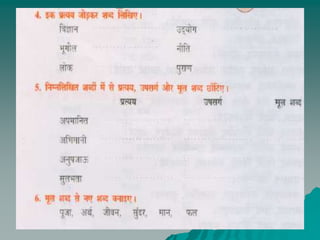 4. इक प्रत्यय जोड़कर शब्द लिखिए।
विज्ञान .................... उद्योग ....................
भूगोल .................... नीति ....................
लोक .................... पुराण ....................
5. निम्नलिखित शब्दों में से प्रत्यय, उपसर्ग और मूल शब्द छाँटिए।
प्रत्यय उपसर्ग मूल शब्द
अपमानित
अभिमानी
अनुपजाऊ
सुलभता
6. मूल शब्द से नए शब्द बनाइए।
पूजा, अर्थ, जीवन, सुंदर, मान, फल